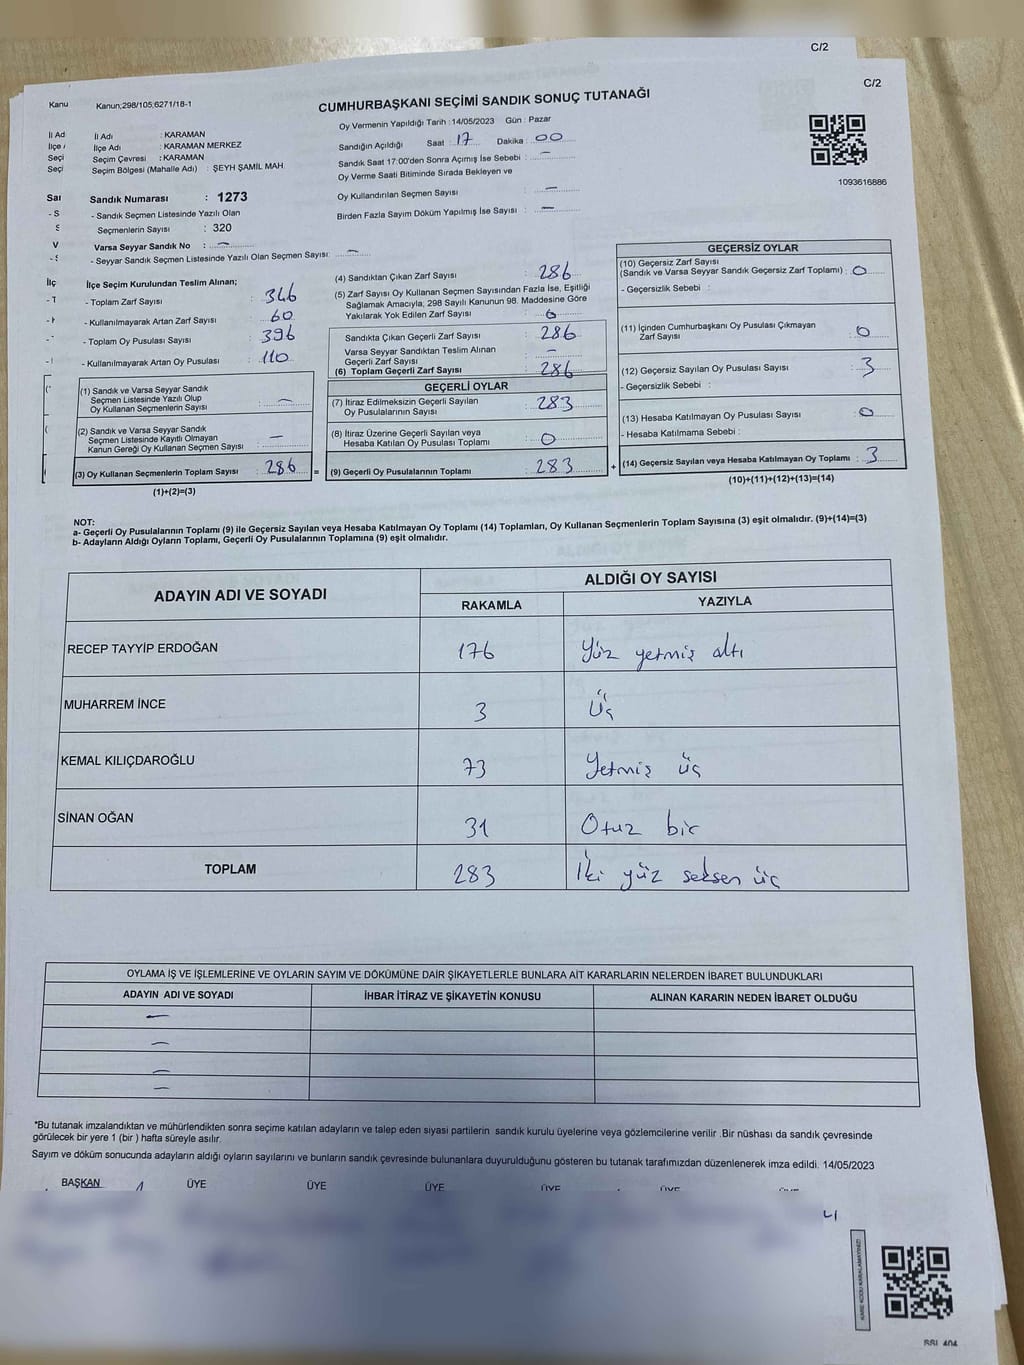 C/2
C/2
Kanu
Kanun;298/105;6271/18-1
CUMHURBAŞKANI SEÇİMİ SANDIK SONUÇ TUTANAĞI
Oy Vermenin Yapıldığı Tarih : 14/05/2023 Gün : Pazar
İl Ad
İlçe
Seçi
Seçi
İl Adı : KARAMAN
İlçe Adı : KARAMAN MERKEZ
Seçim Çevresi : KARAMAN
Seçim Bölgesi (Mahalle Adı) : ŞEYH ŞAMİL MAH.
Sandığın Açıldığı Saat : 17 Dakika : 00
Sandık Saat 17:00'den Sonra Açımış İse Sebebi : –
Oy Verme Saati Bitiminde Sırada Bekleyen ve
Oy Kullandırılan Seçmen Sayısı : –
Birden Fazla Sayım Döküm Yapılmış İse Sayısı : –
1093616886
Sandık Numarası : 1273
- Sandık Seçmen Listesinde Yazılı Olan
Seçmenlerin Sayısı : 320
Varsa Seyyar Sandık No : –
- Seyyar Sandık Seçmen Listesinde Yazılı Olan Seçmen Sayısı: –
İlçe Seçim Kurulundan Teslim Alınan;
- Toplam Zarf Sayısı : 346
- Kullanılmayarak Artan Zarf Sayısı : 60
- Toplam Oy Pusulası Sayısı : 396
- Kullanılmayarak Artan Oy Pusulası : 110
(1) Sandık ve Varsa Seyyar Sandık
Seçmen Listesinde Yazılı Olup
Oy Kullanan Seçmenlerin Sayısı : –
(2) Sandık ve Varsa Seyyar Sandık
Seçmen Listesinde Kayıtlı Olmayan
Kanun Gereği Oy Kullanan Seçmen Sayısı : –
(3) Oy Kullanan Seçmenlerin Toplam Sayısı : 286 =
(1)+(2)=(3)
(4) Sandıktan Çıkan Zarf Sayısı : 286
(5) Zarf Sayısı Oy Kullanan Seçmen Sayısından Fazla İse, Eşitliği
Sağlamak Amacıyla, 298 Sayılı Kanunun 98. Maddesine Göre
Yakılarak Yok Edilen Zarf Sayısı : 0
Sandıkta Çıkan Geçerli Zarf Sayısı : 286
Varsa Seyyar Sandıktan Teslim Alınan
Geçerli Zarf Sayısı : –
(6) Toplam Geçerli Zarf Sayısı : 286
GEÇERLİ OYLAR
(7) İtiraz Edilmeksizin Geçerli Sayılan
Oy Pusulalarının Sayısı : 283
(8) İtiraz Üzerine Geçerli Sayılan veya
Hesaba Katılan Oy Pusulası Toplamı : 0
(9) Geçerli Oy Pusulalarının Toplamı : 283 +
GEÇERSİZ OYLAR
(10) Geçersiz Zarf Sayısı
(Sandık ve Varsa Seyyar Sandık Geçersiz Zarf Toplamı) : 0
- Geçersizlik Sebebi :
(11) İçinden Cumhurbaşkanı Oy Pusulası Çıkmayan
Zarf Sayısı : 0
(12) Geçersiz Sayılan Oy Pusulası Sayısı : 3
- Geçersizlik Sebebi :
(13) Hesaba Katılmayan Oy Pusulası Sayısı : 0
- Hesaba Katılmama Sebebi :
(14) Geçersiz Sayılan veya Hesaba Katılmayan Oy Toplamı : 3
(10)+(11)+(12)+(13)=(14)
NOT:
a- Geçerli Oy Pusulalarının Toplamı (9) ile Geçersiz Sayılan veya Hesaba Katılmayan Oy Toplamı (14) Toplamları, Oy Kullanan Seçmenlerin Toplam Sayısına (3) eşit olmalıdır. (9)+(14)=(3)
b- Adayların Aldığı Oyların Toplamı, Geçerli Oy Pusulalarının Toplamına (9) eşit olmalıdır.
ADAYIN ADI VE SOYADI ALDIĞI OY SAYISI
RAKAMLA YAZIYLA
RECEP TAYYİP ERDOĞAN 176 Yüz yetmiş altı
MUHARREM İNCE 3 Üç
KEMAL KILIÇDAROĞLU 73 Yetmiş üç
SİNAN OĞAN 31 Otuz bir
TOPLAM 283 İki yüz seksen üç
OYLAMA İŞ VE İŞLEMLERİNE VE OYLARIN SAYIM VE DÖKÜMÜNE DAİR ŞİKAYETLERLE BUNLARA AİT KARARLARIN NELERDEN İBARET BULUNDUKLARI
ADAYIN ADI VE SOYADI İHBAR İTİRAZ VE ŞİKAYETİN KONUSU ALINAN KARARIN NEDEN İBARET OLDUĞU
–
–
–
–
"Bu tutanak imzalandıktan ve mühürlendikten sonra seçime katılan adayların ve talep eden siyasi partilerin sandık kurulu üyelerine veya gözlemcilerine verilir .Bir nüshası da sandık çevresinde
görülecek bir yere 1 (bir ) hafta süreyle asılır.
Sayım ve döküm sonucunda adayların aldığı oyların sayılarını ve bunların sandık çevresinde bulunanlara duyurulduğunu gösteren bu tutanak tarafımızdan düzenlenerek imza edildi. 14/05/2023
BAŞKAN ÜYE ÜYE ÜYE ÜYE ÜYE ÜYE
KARE KODU KARALAMAYINIZ!